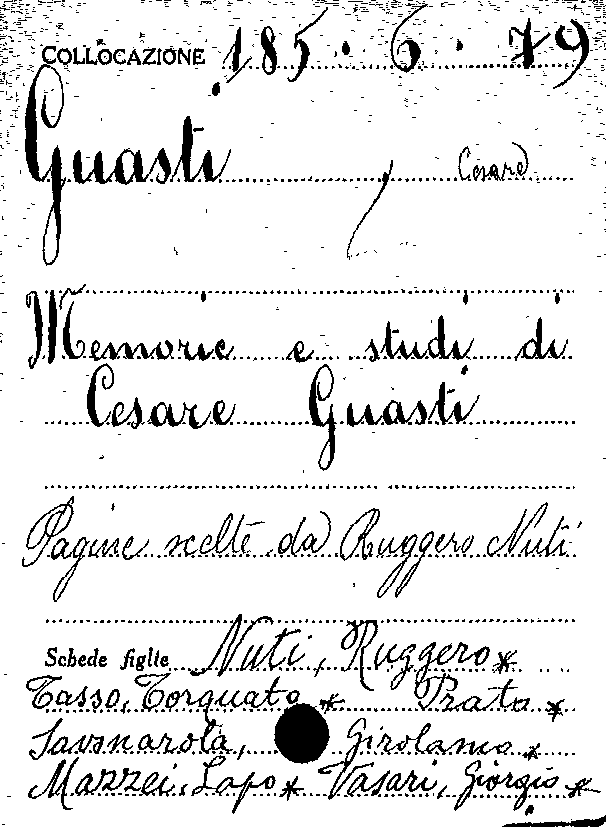 COLLOCAZIONE 185.6.79
Guasti, Cesare
Memorie e studi di
Cesare Guasti
Pagine scelte da Ruggero Nuti
Schede figlie Nuti, Ruggero *
Tasso, Torquato * Prato *
Savonarola, Girolamo *
Mazzei, Lapo * Vasari, Giorgio *